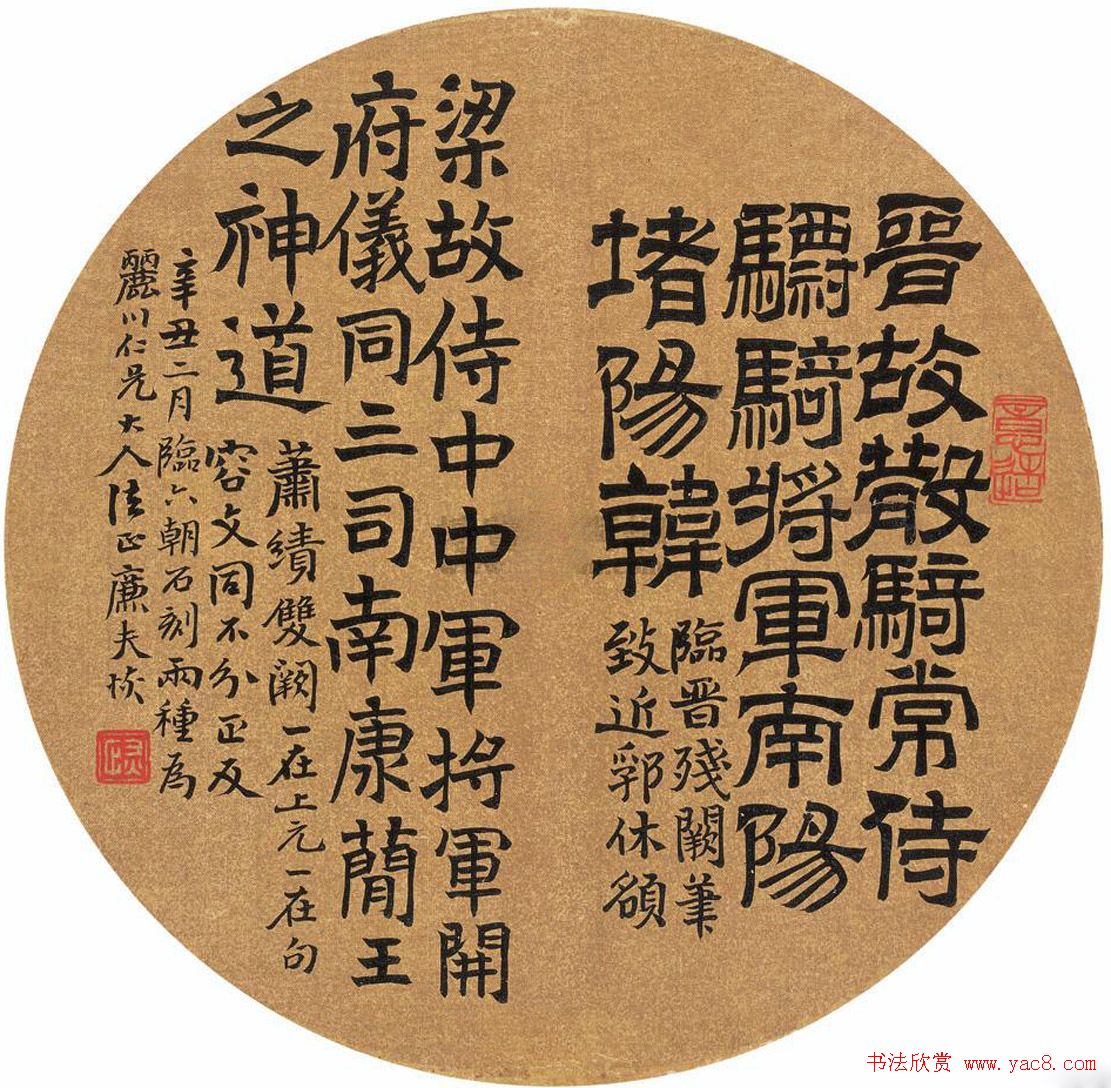 晉故散騎常侍
驃騎將軍南陽
堵陽韓
臨晋殘闕筆
致近郛休額
梁故侍中中軍將軍開
府儀同三司南康簡王
之神道
蕭績雙闕一在上元一在句
容文同不分正反
辛丑二月臨六朝石刻兩種為
麗川仁兄大人法正廉夫恢
书法欣赏 www.yac8.com